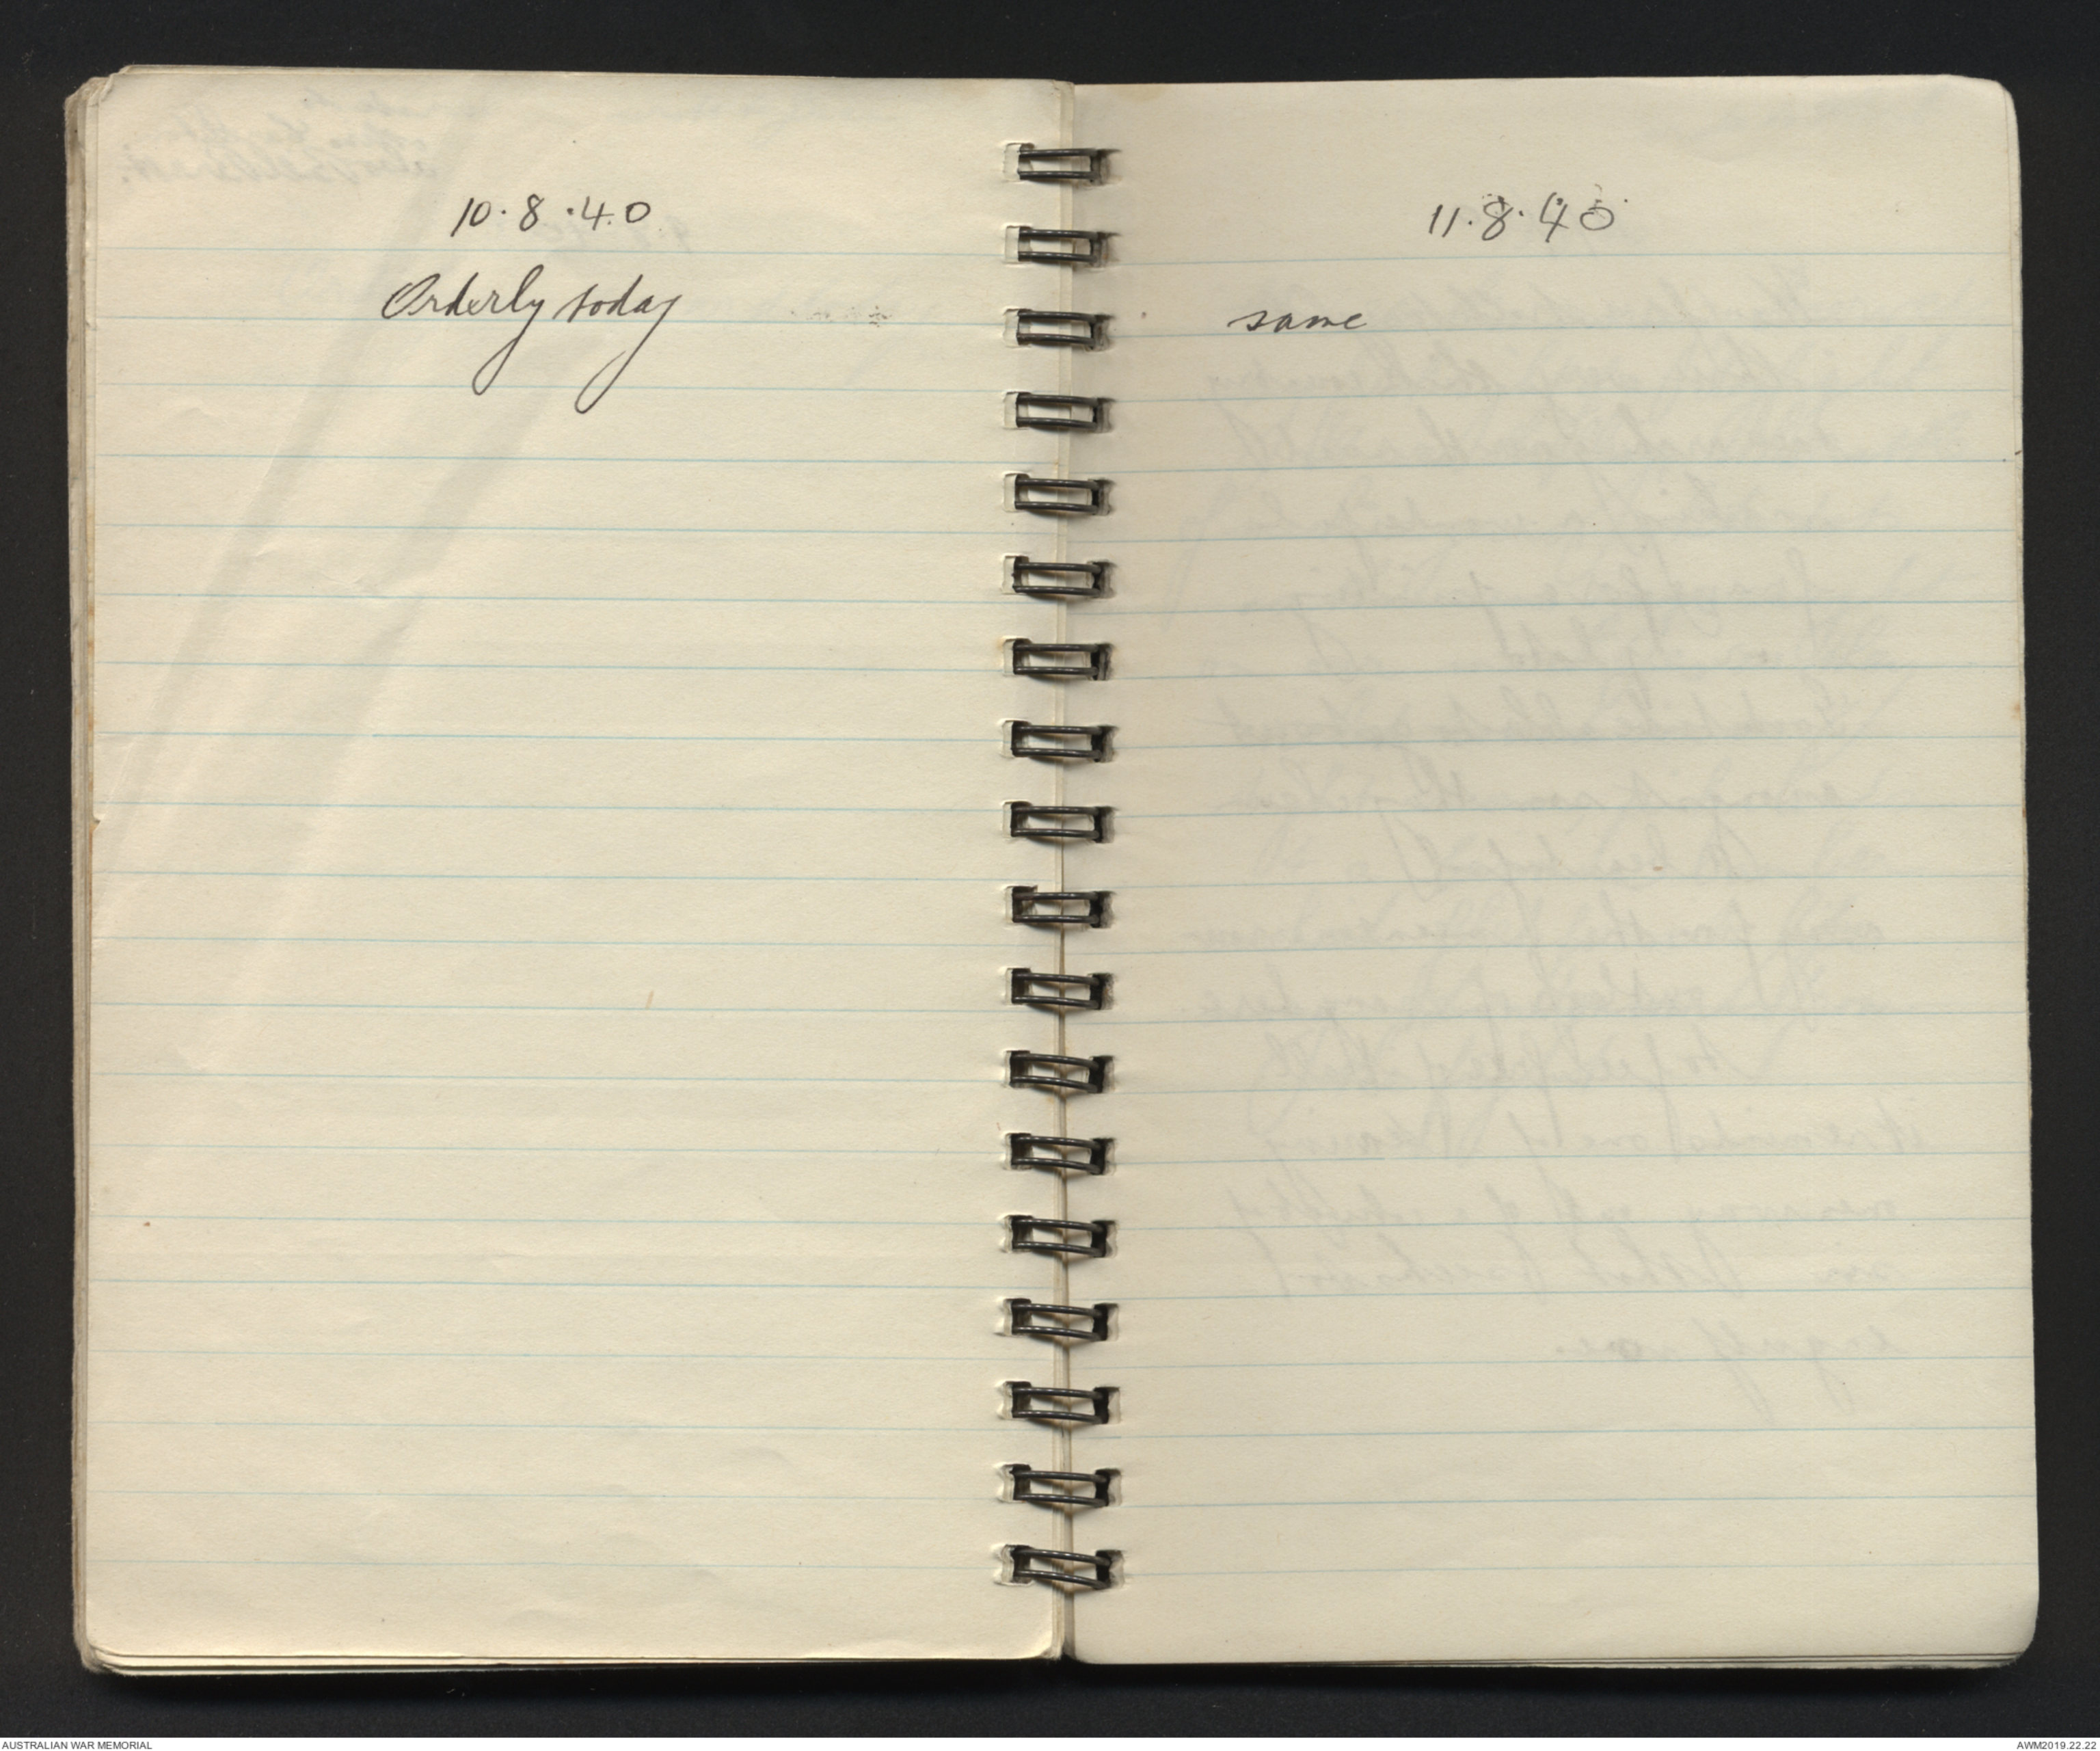 10.8.40
Orderly today
11.8.40
same
AUSTRALIAN WAR MEMORIAL
AWM2019.22.22